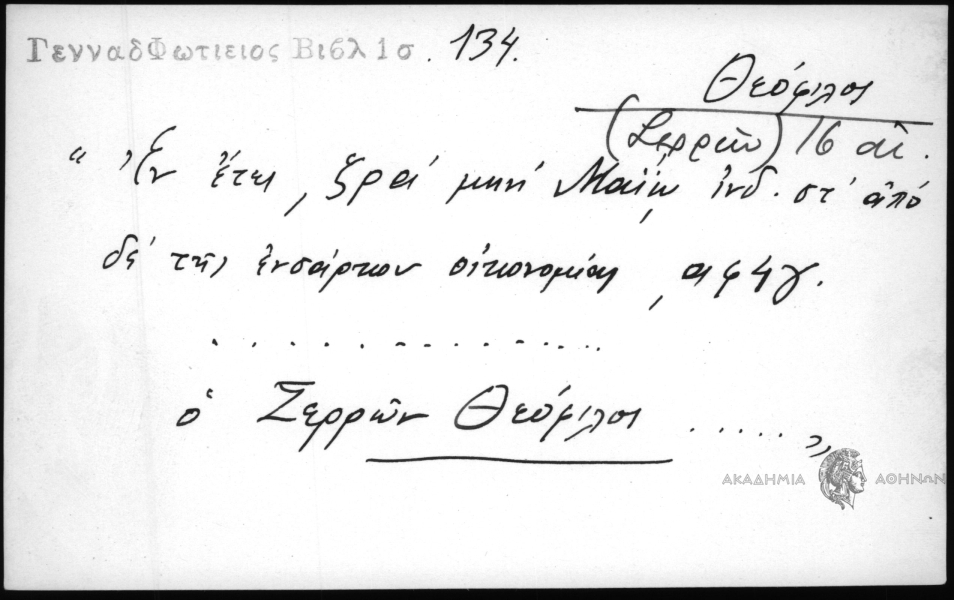 ΓενναδΦωτιειος Βιβλ 1σ. 134.
Θεόφιλος
(Σερρῶν) 16 αἰ.
"Ἐν ἔτει ͵ζραʹ μηνὶ Μαΐῳ ἰνδ. στʹ ἀπὸ
δέ τῆς ἐνσάρκου οἰκονομίας ͵αφ4γ.
. . . . . . . . . . . . . . . .
ὁ Σερρῶν Θεόφιλος ......"
ΑΚΑΔΗΜΙΑ ΑΘΗΝΩΝ